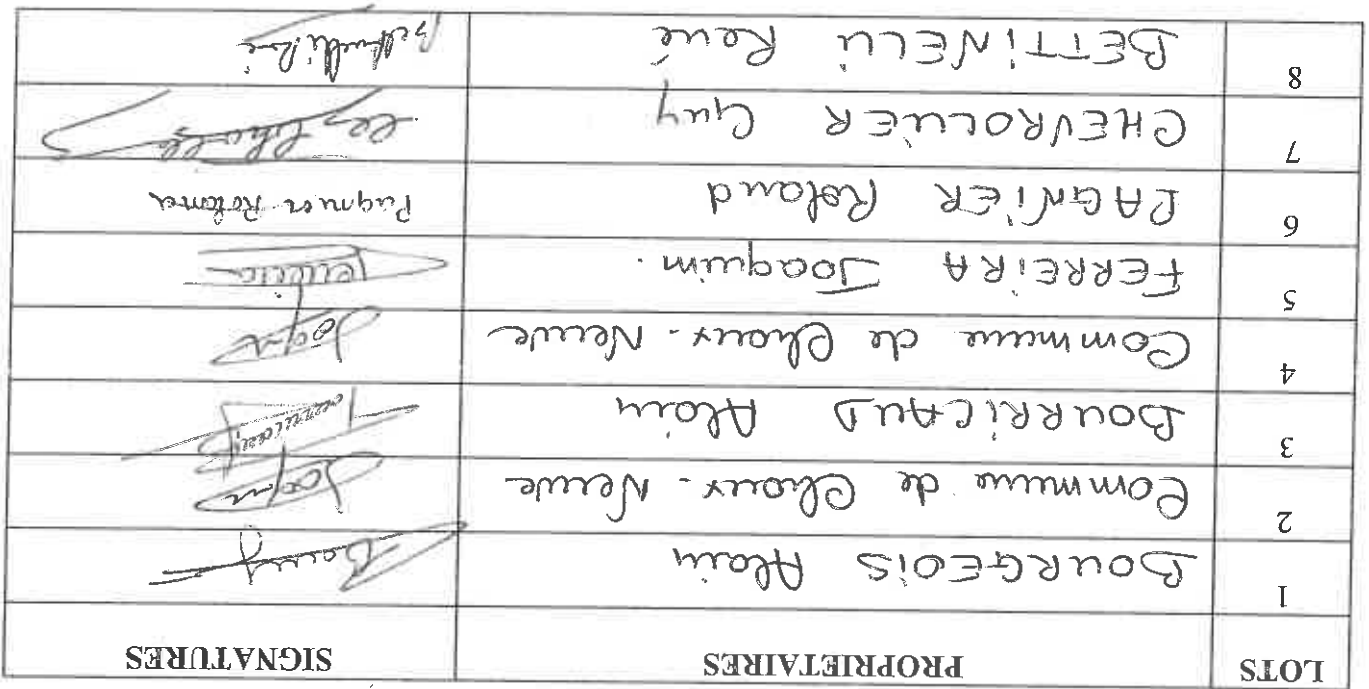 LOTS PROPRIETAIRES SIGNATURES
1 BOURGEOIS Alain Bourg
2 Commune de Chaux-Neuve
3 BOURRICAUD Alain
4 Commune de Chaux-Neuve
5 FERREIRA Joaquim.
6 PAGNIER Roland Pagnier Roland
7 CHEVROLLIER Guy
8 BETTINELLI René Bettinelli René